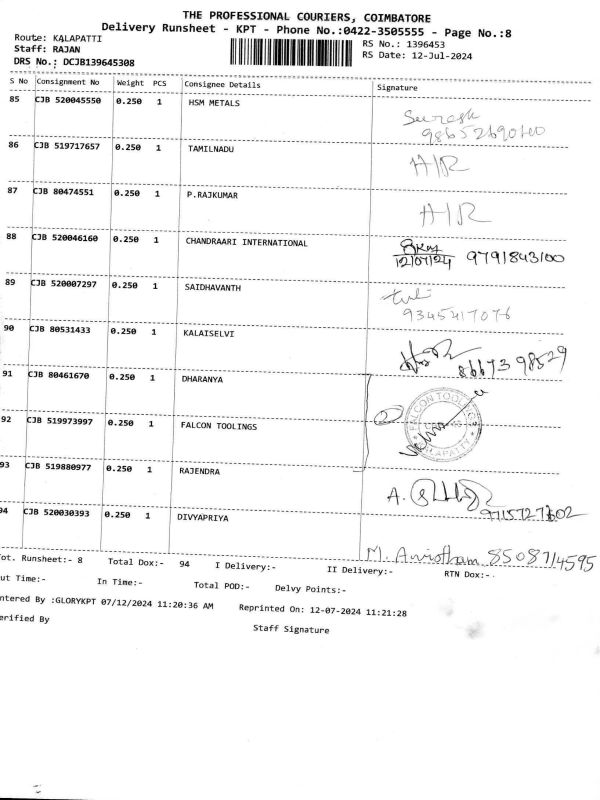 THE PROFESSIONAL COURIERS, COIMBATORE
Delivery Runsheet - KPT - Phone No.:0422-3505555 - Page No.:8
Route: KALAPATTI
RS No.: 1396453
Staff: RAJAN
RS Date: 12-Jul-2024
DRS No.: DCJB139645308
S No Consignment No Weight PCS Consignee Details Signature
85 CJB 520045550 0.250 1 HSM METALS
Suresh
86 CJB 519717657 0.250 1 TAMILNADU
H/R
87 CJB 80474551 0.250 1 P.RAJKUMAR
H/R
88 CJB 520046160 0.250 1 CHANDRAARI INTERNATIONAL
12/07/24 9791843100
89 CJB 520007297 0.250 1 SAIDHAVANTH
9345417076
90 CJB 80531433 0.250 1 KALAISELVI
8667398529
91 CJB 80461670 0.250 1 DHARANYA
92 CJB 519973997 0.250 1 FALCON TOOLINGS
FALCON TOOLINGS
93 CJB 519880977 0.250 1 RAJENDRA
A.
94 CJB 520030393 0.250 1 DIVYAPRIYA
9715727602
M. 8508714595
ot. Runsheet:- 8 Total Dox:- 94 I Delivery:- II Delivery:- RTN Dox:-
ut Time:- In Time:- Total POD:- Delvy Points:-
ntered By :GLORYKPT 07/12/2024 11:20:36 AM Reprinted On: 12-07-2024 11:21:28
erified By
Staff Signature